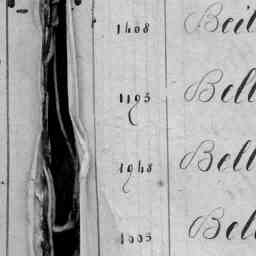 1408 Beil
1195 Bell
1948 Bell
1005 Bell